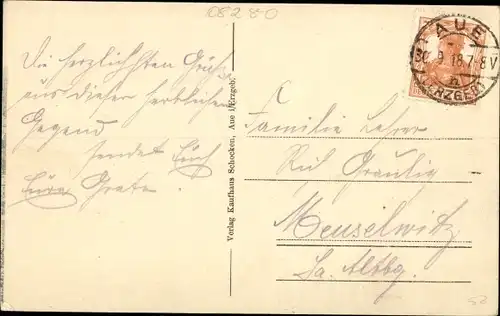 08280
Die herzlichsten Grüße
aus dieser herrlichen
Gegend
sendet Euch
Eure Grete.
Verlag Kaufhaus Schocken, Aue i/Erzgeb.
AUE
9 18 7-8V
(ERZGEB)
Familie Lehrer
Rich Graulig
Meuselwitz
Sa. Altbg.